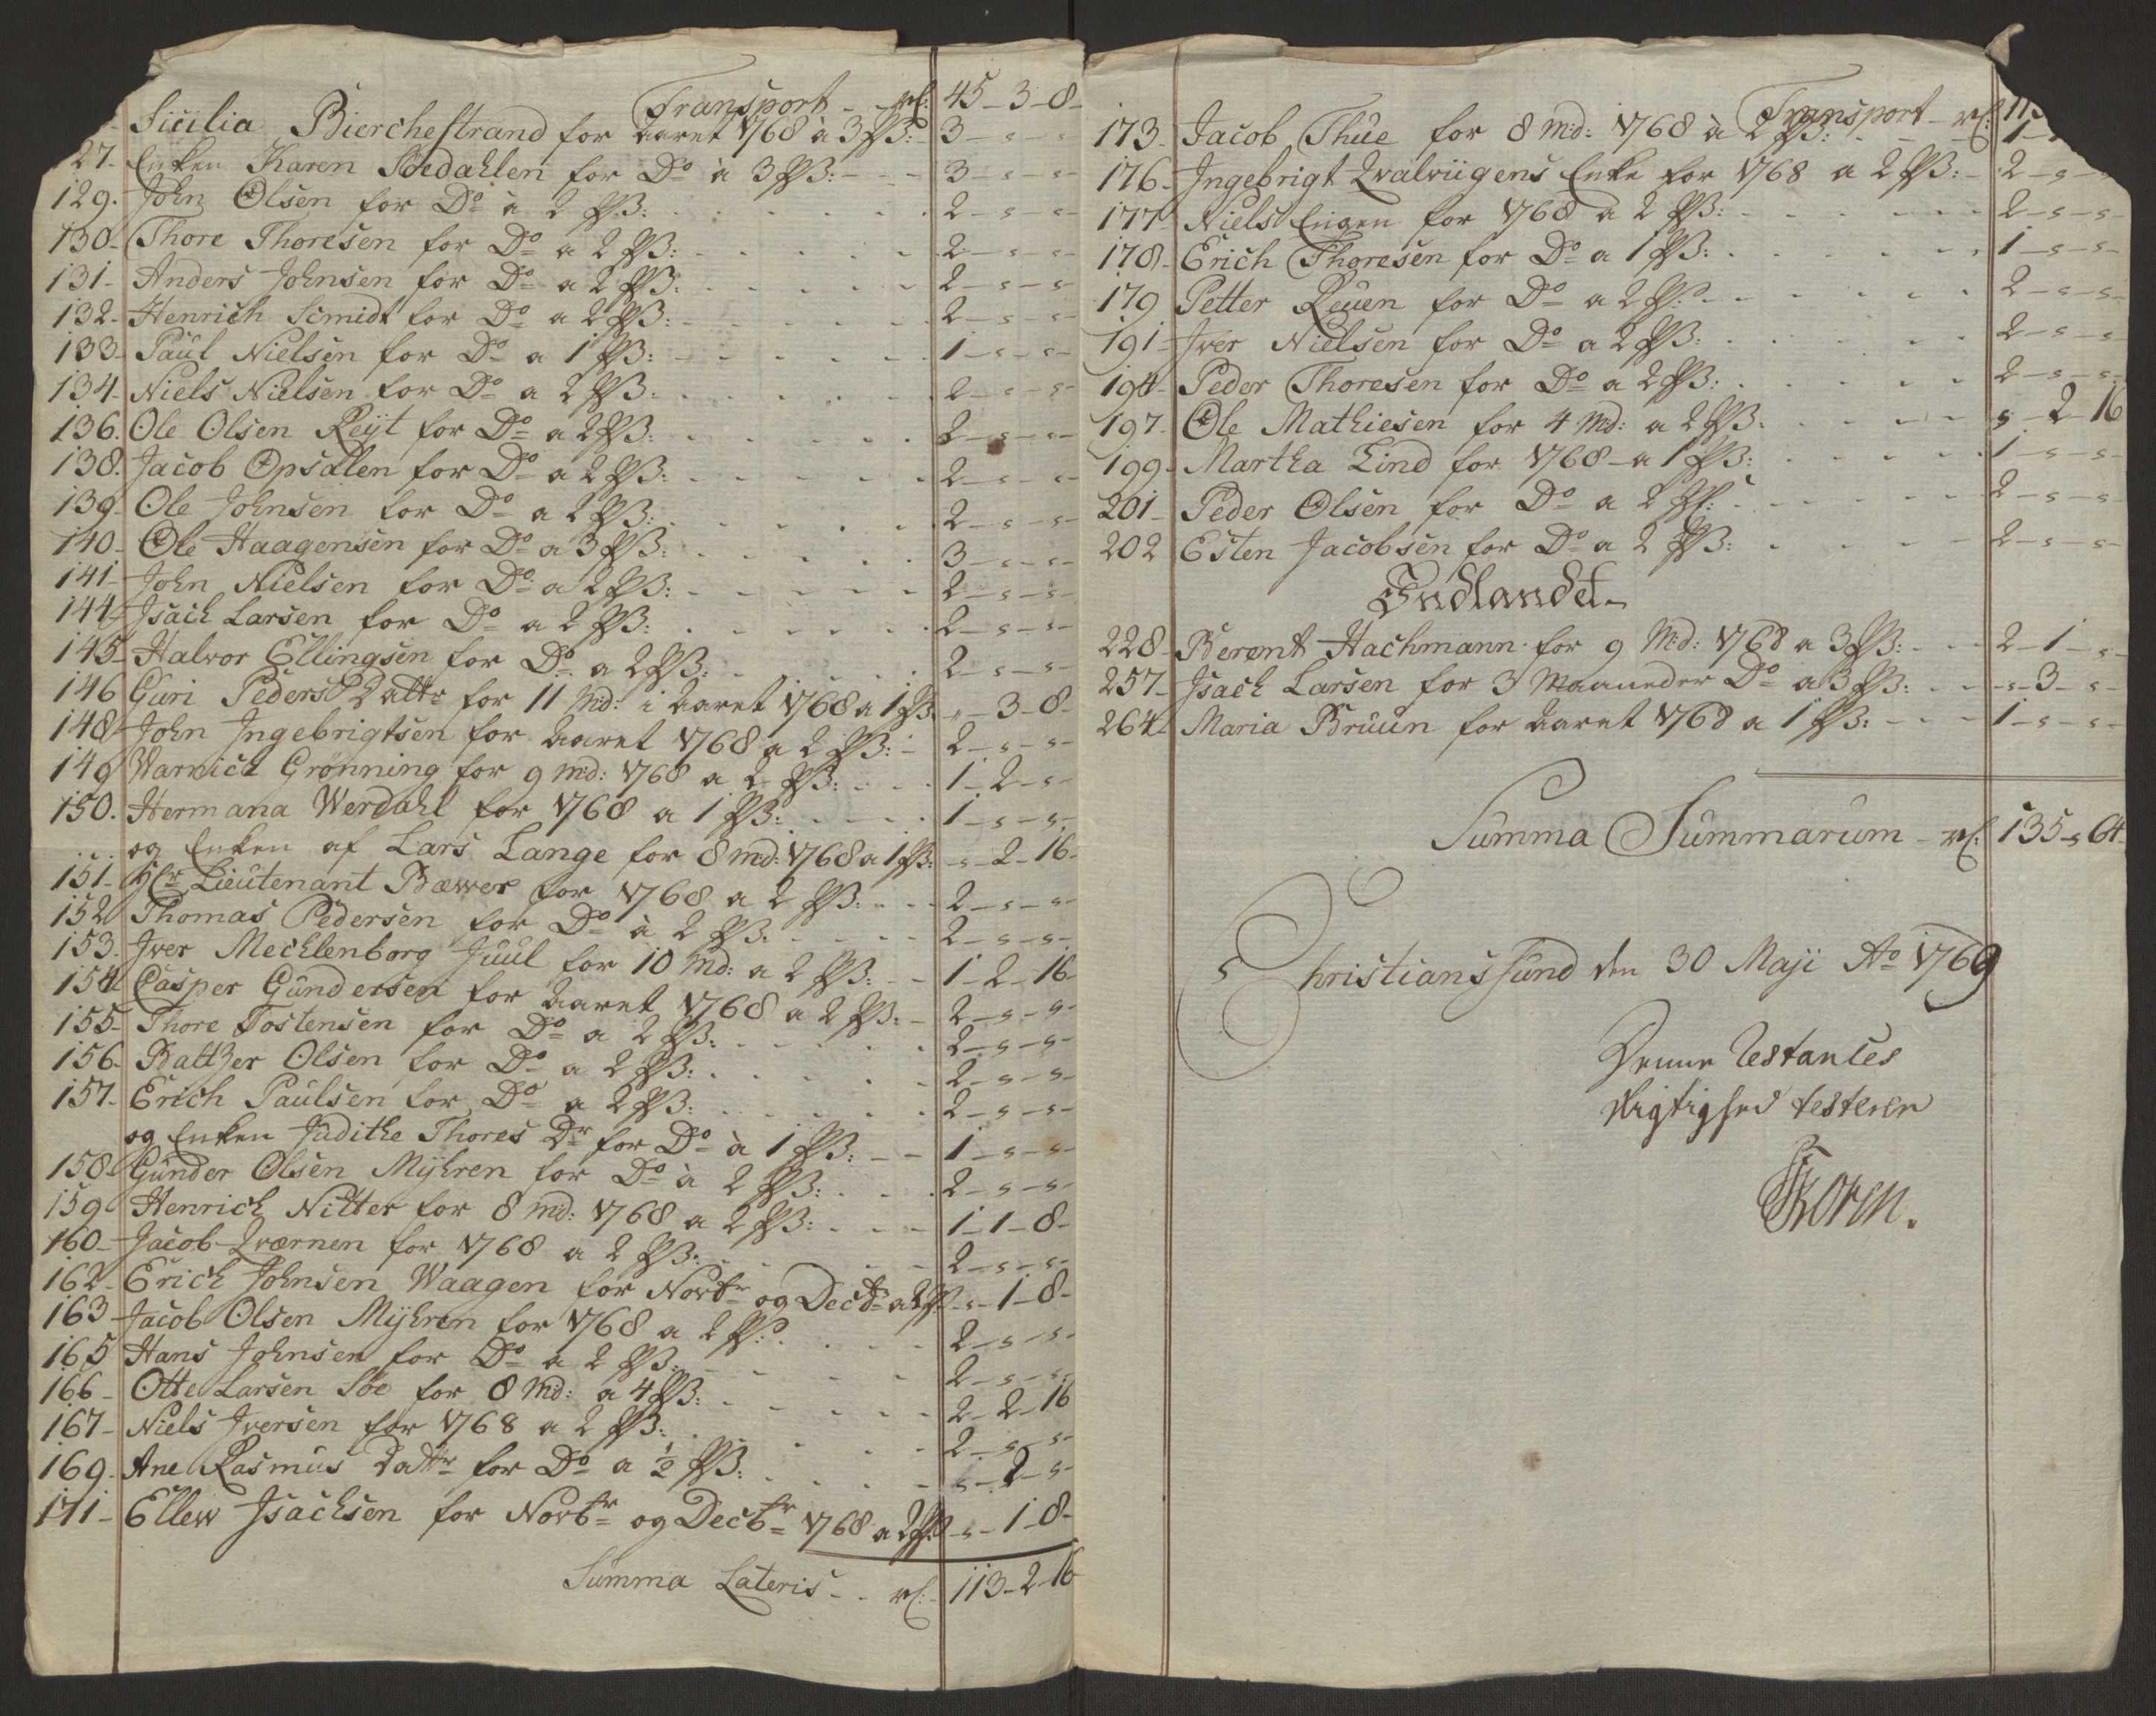 Transport - - rd: 45-3-8-
Sicilia Bierchestrand for aaret 1768 à 3 PB: 3-s-s
27- Enken Karen Soedahlen for Do à 3 PB: - - - 3-s-s-
129. John Olsen for Do à 2 PB: 2-s-s-
130- Thore Thoresen for Do a 2 PB: 2-s-s-
131- Anders Johnsen for Do a 2 PB: 2-s-s
132- Henrich Scmidt for Do a 2 PB: 2-s-s-
133- Paul Nielsen for Do a 1 PB: 1-s-s-
134- Niels Nielsen for Do a 2 PB: 2-s-s-
136. Ole Olsen Reijt for Do a 2 PB: 2-s-s-
138. Jacob Opsalen for Do a 2 PB: 2-s-s-
139- Ole Johnsen for Do a 2 PB: 2-s-s-
140- Ole Haagensen for Do a 3 PB: 3-s-s-
141- John Nielsen for Do a 2 PB: 2-s-s-
144- Jsach Larsen for Do a 2 PB: 2-s-s-
145- Halvor Ellingsen for Do a 2 PB: 2-s-s-
146 Guri Peders Dattr for 11 Md: i aaret 1768 a 1 PB s-3-8-
148- John Jngebrigtsen for aaret 1768 a 2 PB: - 2-s-s-
149 Warnich Grønning for 9 md: 1768 a 2 PB: 1-2-s-
150. Hermana Werdahl for 1768 a 1 PB: 1-s-s-
og Enken af Lars Lange for 8 md: 1768 a 1 PB: s-2-16-
151- Hr Lieutenant Bæwer for 1768 a 2 PB: - - - 2-s-s-
152 Thomas Pedersen for Do à 2 PB: 2-s-s-
153. Jver Mechlenborg Juul for 10 Md: a 2 PB: - - 1-2-16-
154 Casper Gundersen for aaret 1768 a 2 PB: - 2-s-s-
155- Thore Tostensen for Do a 2 PB: 2-s-s-
156- Baltzer Olsen for Do a 2 PB: 2-s-s-
157- Erich Paulsen for Do a 2 PB: 2-s-s-
og Enken Judithe Thores Dr for Do à 1 PB: - - 1-s-s-
158- Gunder Olsen Mijhren for Do à 2 PB: 2-s-s-
159- Henrich Nitter for 8 md: 1768 a 2 PB: - - - 1-1-8-
160- Jacob Qværnen for 1768 a 2 PB: 2-s-s-
162- Erich Johnsen Waagen for Novbr og Decbr a 2 PB s-1-8-
163- Jacob Olsen Mijhren for 1768 a 2 PB: 2-s-s-
165 Hans Johnsen for Do a 2 PB: 2-s-s-
166- Otte Larsen Soe for 8 Md: a 4 PB: 2-2-16
167- Niels Jversen for 1768 a 2 PB: 2-s-s-
169. Ane Rasmus Dattr for Do a ½ PB: s-2-s-
171- Ellew Jsachsen for Novbr og Decbr 1768 a 2 PB s-1-8-
Summa Lateris - - rd: 113-2-16
Transport - rd: 11
173- Jacob Thue for 8 Md: 1768 à 2 PB: 1-
176- Jngebrigt Qvalviigens Enke for 1768 a 2 PB: - 2-s-
177- Niels Engen for 1768 a 2 PB: 2-s-s-
178- Erich Thoresen for Do a 1 PB: 1-s-s-
179 Petter Reuen for Do a 2 PB: 2-s-s-
191- Jver Nielsen for Do a 2 PB: 2-s-s-
194- Peder Thoresen for Do a 2 PB: 2-s-s-
197- Ole Mathiesen for 4 Md: a 2 PB: s-2-16
199- Martha Lind for 1768 - a 1 PB: 1-s-s-
201- Peder Olsen for Do a 2 PB: 2-s-s-
202 Esten Jacobsen for Do a 2 PB: 2-s-s-
Indlandet-
228- Berent Hachmann for 9 Md: 1768 a 3 PB: - - - 2-1-s-
257- Jsach Larsen for 3 Maaneder Do a 3 PB: - - s-3-s-
264- Maria Bruun for aaret 1768 a 1 PB: - - - 1-s-s-
Summa Summarum - rd: 135-s-64-
Christianssund den 30 Maji Ao 1769
Denne Restances
Rigtighed testerer